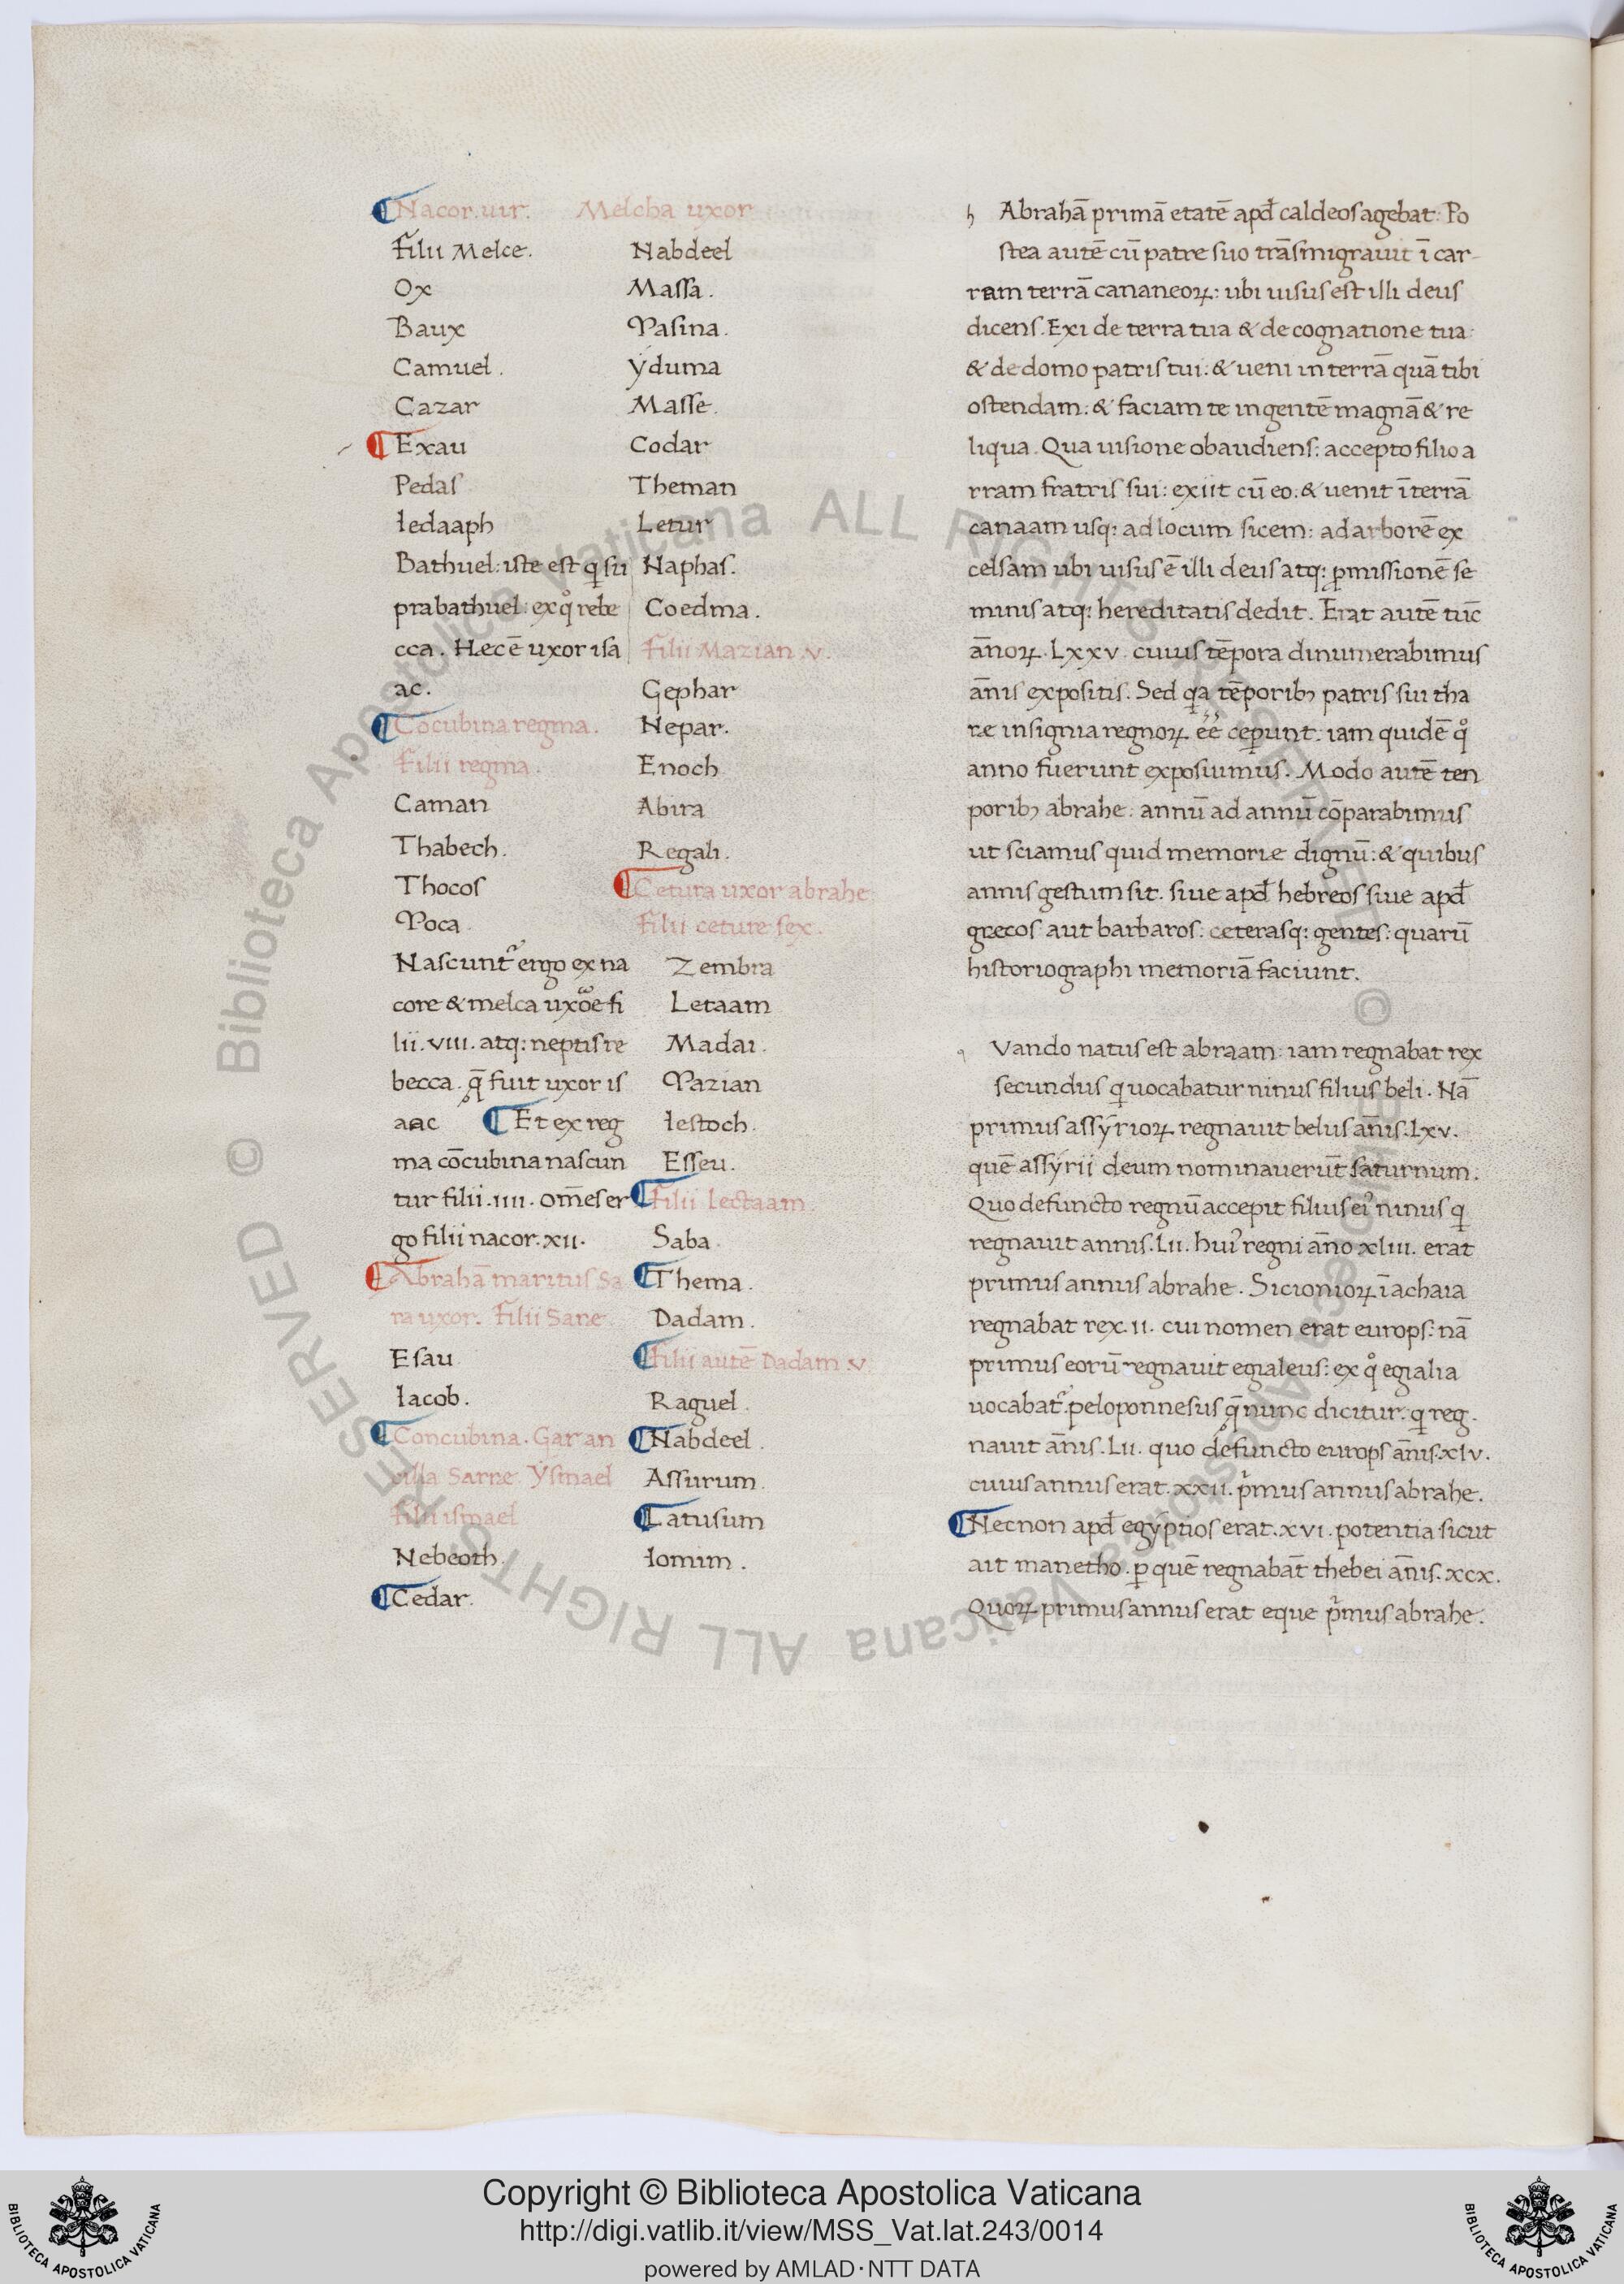 Nacor. uir. Melcha uxor
Filii Melce.
Ox
Baux
Camuel.
Cazar
Exau
Pedas
Iedaaph
Bathuel: iste est q̨ sū
prabathuel: ex qͦ rebe
cca. Hec ē uxor isa
ac.
Cōcubina regma.
Filii regma.
Caman
Thabech.
Thocos
Moca.
Nascunt᷑ ergo ex na
core & melca uxōe fi
lii. VIII. atq: neptis re
becca. q̄ fuit uxor is
aac Et ex reg
ma cōcubina nascun
tur filii. IIII. om̄es er
go filii nacor. XII.
Abrahā maritus Sa
ra uxor. Filii Sarre
Esau
Iacob.
Concubina. Gar an
cilla Sarre. Ysmael
filii ismael
Nebeoth.
Cedar.
Nabdeel
Massa.
Masina.
yduma
Masse.
Codar
Theman
Letur
Naphas.
Coedma.
Filii Mazian. V.
Gephar
Nepar.
Enoch
Abira
Regali.
Cetura uxor abrahe
Filii ceture sex.
Zembra
Letaam
Madai.
Mazian
Iestoch.
Esseu.
Filii lectaam.
Saba.
Thema.
Dadam.
Filii autē Dadam. V.
Raguel.
Nabdeel.
Assurum.
Latusum
Iomim.
h Abrahā primā etatē apđ caldeos agebat: Po
stea autē cū patre suo trāsmigrauit ī car-
ram terrā cananeoꝝ: ubi uisus est illi deus
dicens. Exi de terra tua & de cognatione tua:
& de domo patris tui: & ueni in terrā quā tibi
ostendam: & faciam te in gentē magnā & re
liqua. Qua uisione obaudiens: accepto filio a
rram fratris sui: exiit cū eo: & uenit ī terrā
canaam usq: ad locum sicem: ad arborē ex
celsam ubi uisus ē illi deus atq: ꝓmissionē se
minis atq: hereditatis dedit. Erat autē tūc
ānoꝝ. LXXV. cuius tēpora dinumerabimus
ānis expositis. Sed qa tēporibꝫ patris sui tha
re insignia regnoꝝ ēē ceperunt: iam quidē qͦ
anno fuerunt exposuimus. Modo autē ten
poribꝫ abrahe: annū ad annū cōparabimus
ut sciamus quid memorie dignū: & quibus
annis gestum sit. siue apđ hebreos siue apđ
grecos aut barbaros: ceterasq: gentes: quarū
historiographi memoriā faciunt.
q Vando natus est abraam: iam regnabat rex
secundus q̨ uocabatur ninus filius beli. Nā
primus assyrioꝝ regnauit belus anis. LXV.
quē assyrii deum nominauerūt saturnum.
Quo defuncto regnū accepit filius eiꝰ ninus q̨
regnauit annis. LII. huiꝰ regni āno XLIII. erat
primus annus abrahe. Sicionioꝝ ī achaia
regnabat rex. II. cui nomen erat europs: nā
primus eorū regnauit egialeus: ex qͦ egialia
uocabat᷑. peloponnesus q̄ nunc dicitur: q̨ reg-
nauit ānis. LII. quo defuncto europs ānis. XLV.
cuius annus erat. XXII. pͥmus annus abrahe.
Necnon apđ egyptios erat. XVI. potentia sicut
ait manetho. ꝑ quē regnabāt thebei ānis. XCX.
Quoꝝ primus annus erat eque pͥmus abrahe.
© Biblioteca Apostolica Vaticana ALL RIGHTS RESERVED
© Biblioteca Apostolica Vaticana ALL RIGHTS RESERVED
Copyright © Biblioteca Apostolica Vaticana
http://digi.vatlib.it/view/MSS_Vat.lat.243/0014
powered by AMLAD·NTT DATA
BIBLIOTECA APOSTOLICA VATICANA
BIBLIOTECA APOSTOLICA VATICANA